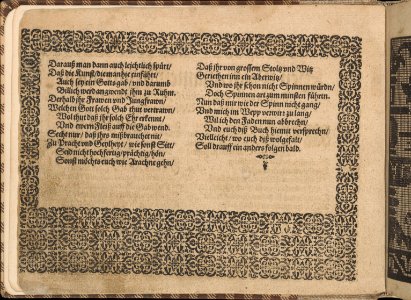 Darauß man dann auch leichtlich spürt/
Daß die Kunst/ die man hie einführt/
Auch sey ein Gotts gab/ und darumb
Billich werd angwendt ihm zu Ruhm.
Derhalb ihr Frawen und Jungfrawn/
Welchen Gott solch Gab thut vertrawn/
Wol thut daß ihr solch Ehr erkennt/
Und ewern Fleiß auff die Gab wend.
Secht nur/ daß ihrs nicht mißbrauchet
Zu Pracht und Geylheyt/ wie sonst Sitt/
Seid nicht hochfertig/ prächtig/ hön/
Sonst möchts euch wie Arachne gehn/
Daß ihr von grossem Stoltz und Witz
Geriethen inn ein Aberwitz/
Und wo ihr schon nicht Spinnen würdn/
Doch Spinnen art zum minsten führn.
Nun daß mir wie der Spinn nicht gang/
Und mich im Wepp verwirr zu lang/
Wil ich den Faden nun abbrechn/
Und euch diß Buch hiemit versprechn/
Vielleicht/ wo euch diß wolgefalt/
Soll drauff ein anders folgen bald.